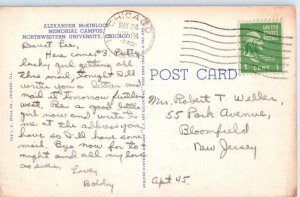 ALEXANDER McKINLOCK
MEMORIAL CAMPUS,
NORTHWESTERN UNIVERSITY, CHICAGO
CHICAGO
MAY 24
POST CARD
1 CENT 1
Dearest Lee,
Here comes 3. Pretty
lucky girl getting all
this mail, tonight I'll
write you a letter and
mail it tomorrow further
west. Be a good little
girl now and write to
me at the address you
have so I'll have some
mail. Bye now for to-
night and all my love
as ever.
Love,
Bobby
Mrs. Robert T. Weller
55 Park Avenue,
Bloomfield
New Jersey
Apt 45.